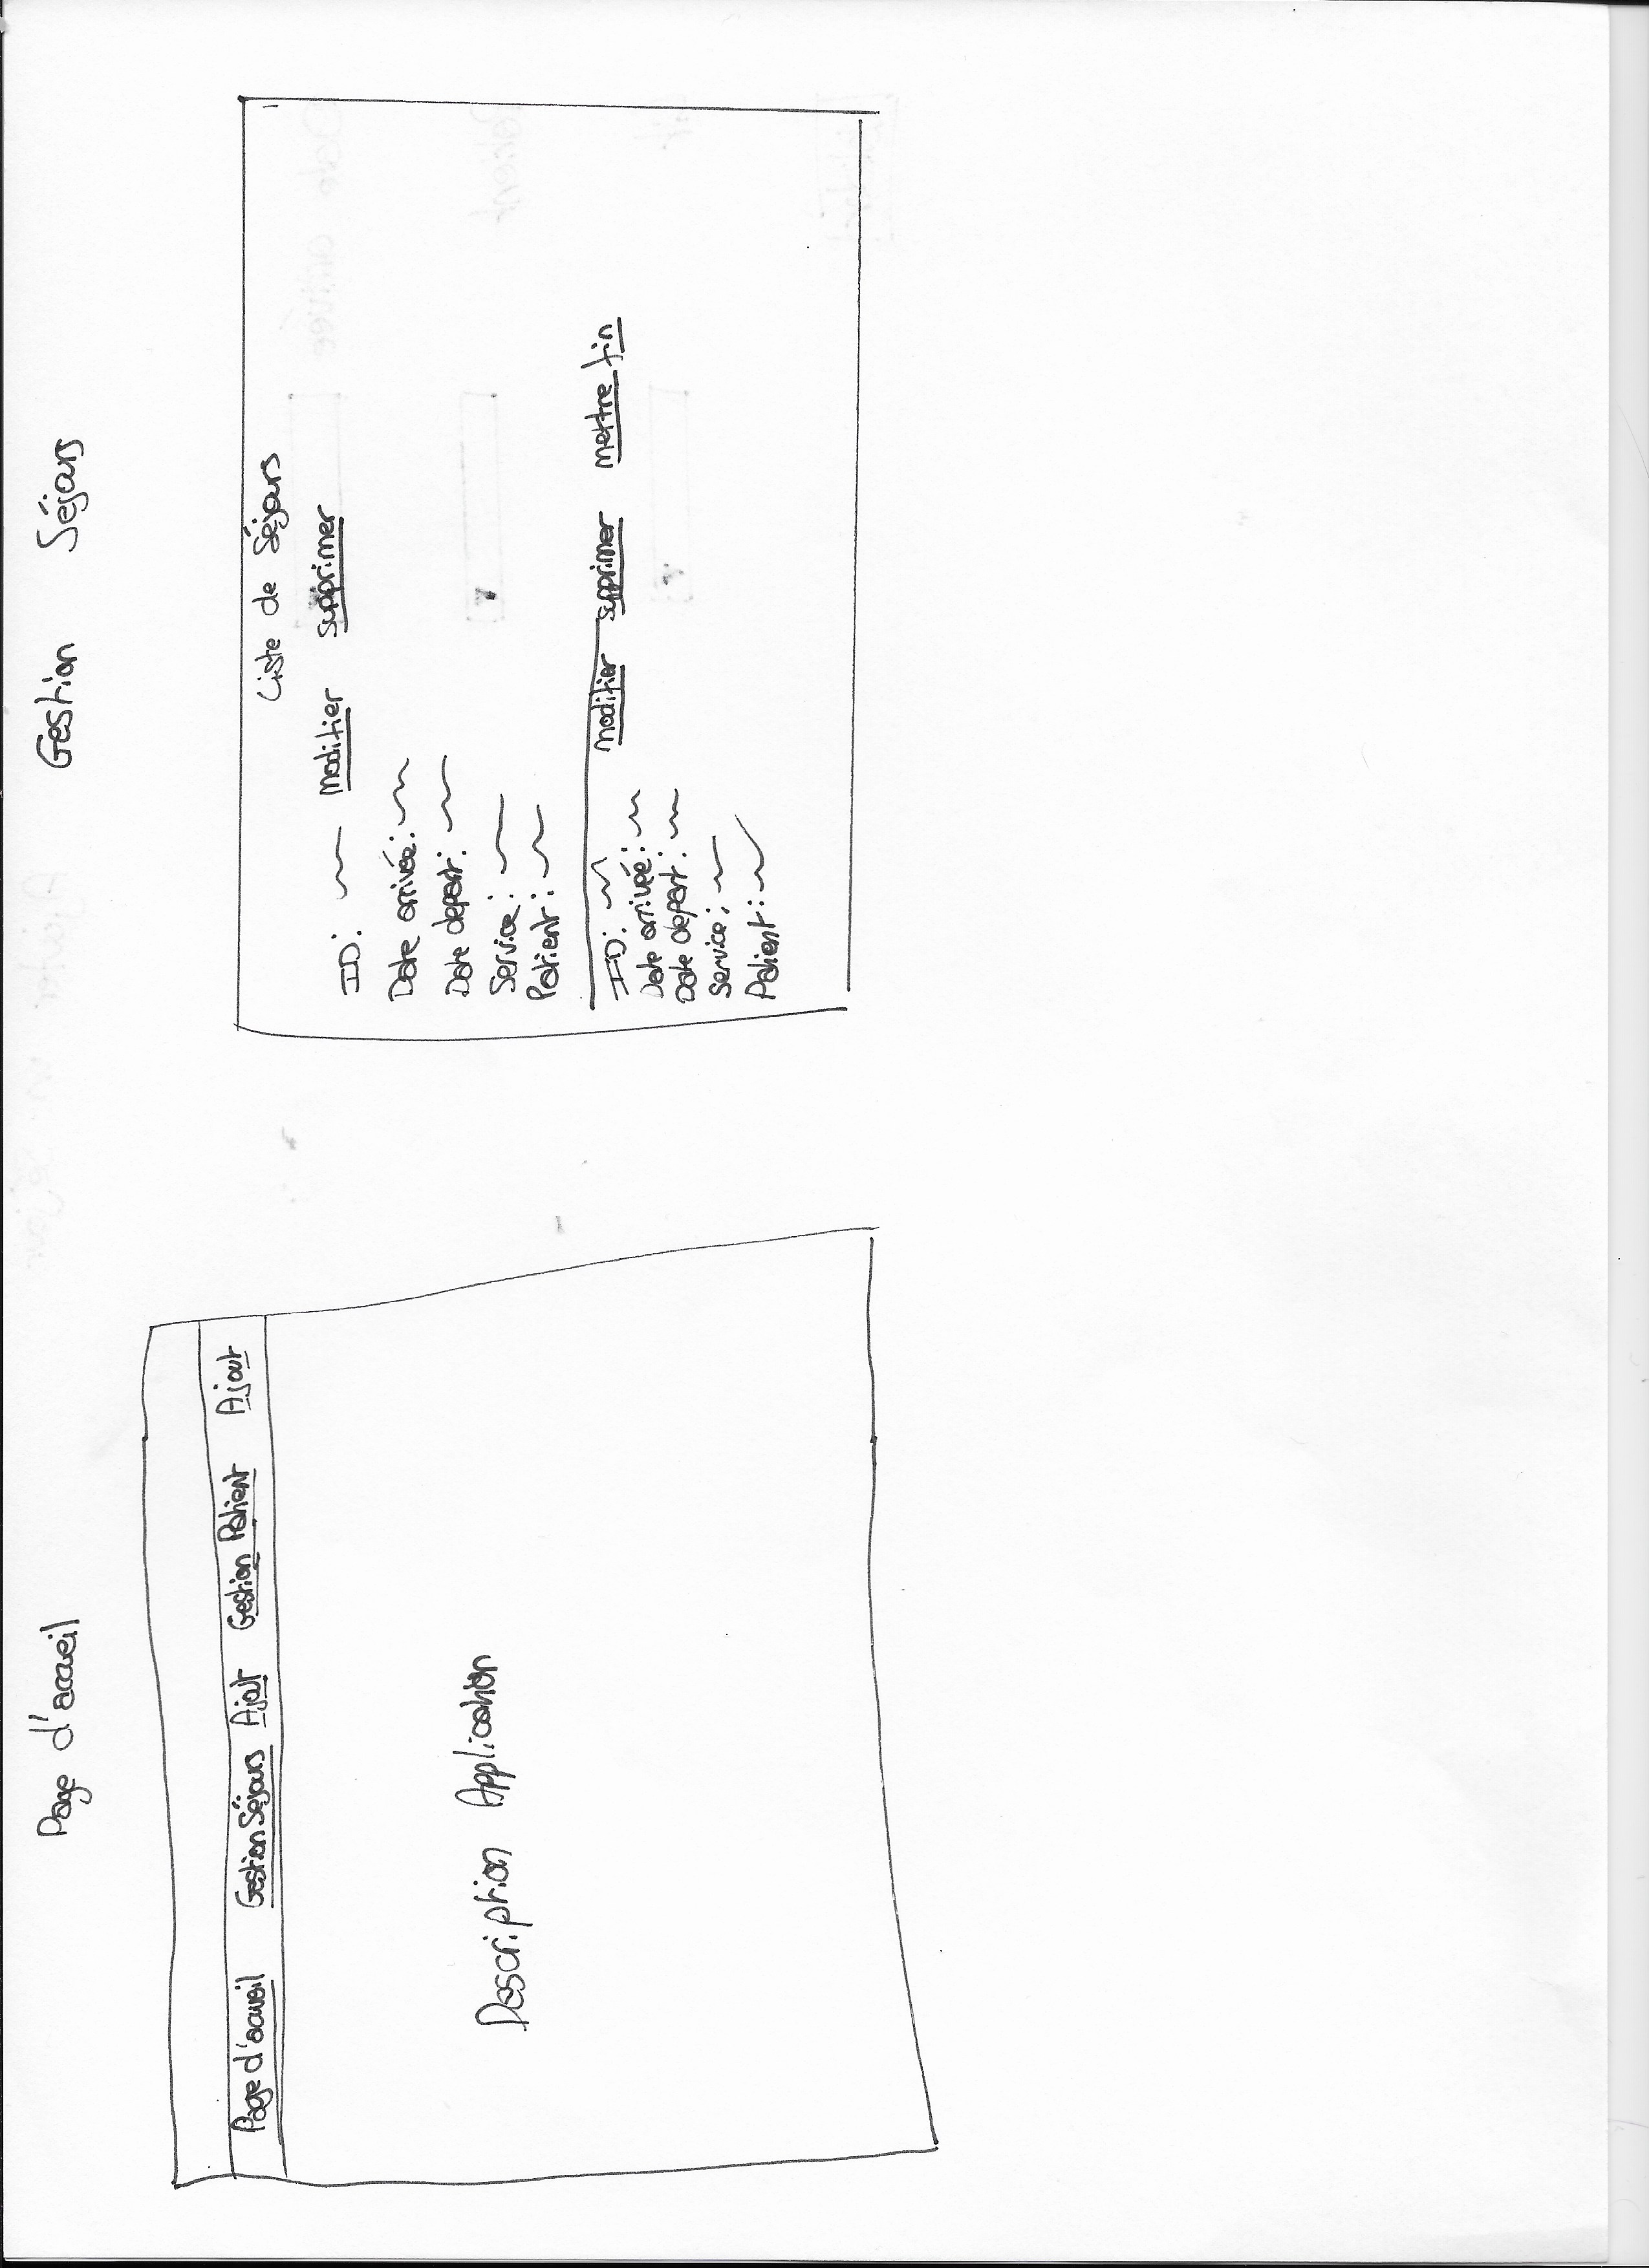 Page d'accueil
Page d'accueil Gestion Séjours Ajout Gestion Patient Ajout
Description Application
Gestion Séjours
Liste de Séjours
ID: modifier supprimer
Date arrivée:
Date depart:
Service:
Patient:
ID: modifier supprimer mettre fin
Date arrivée:
Date depart:
Service:
Patient: